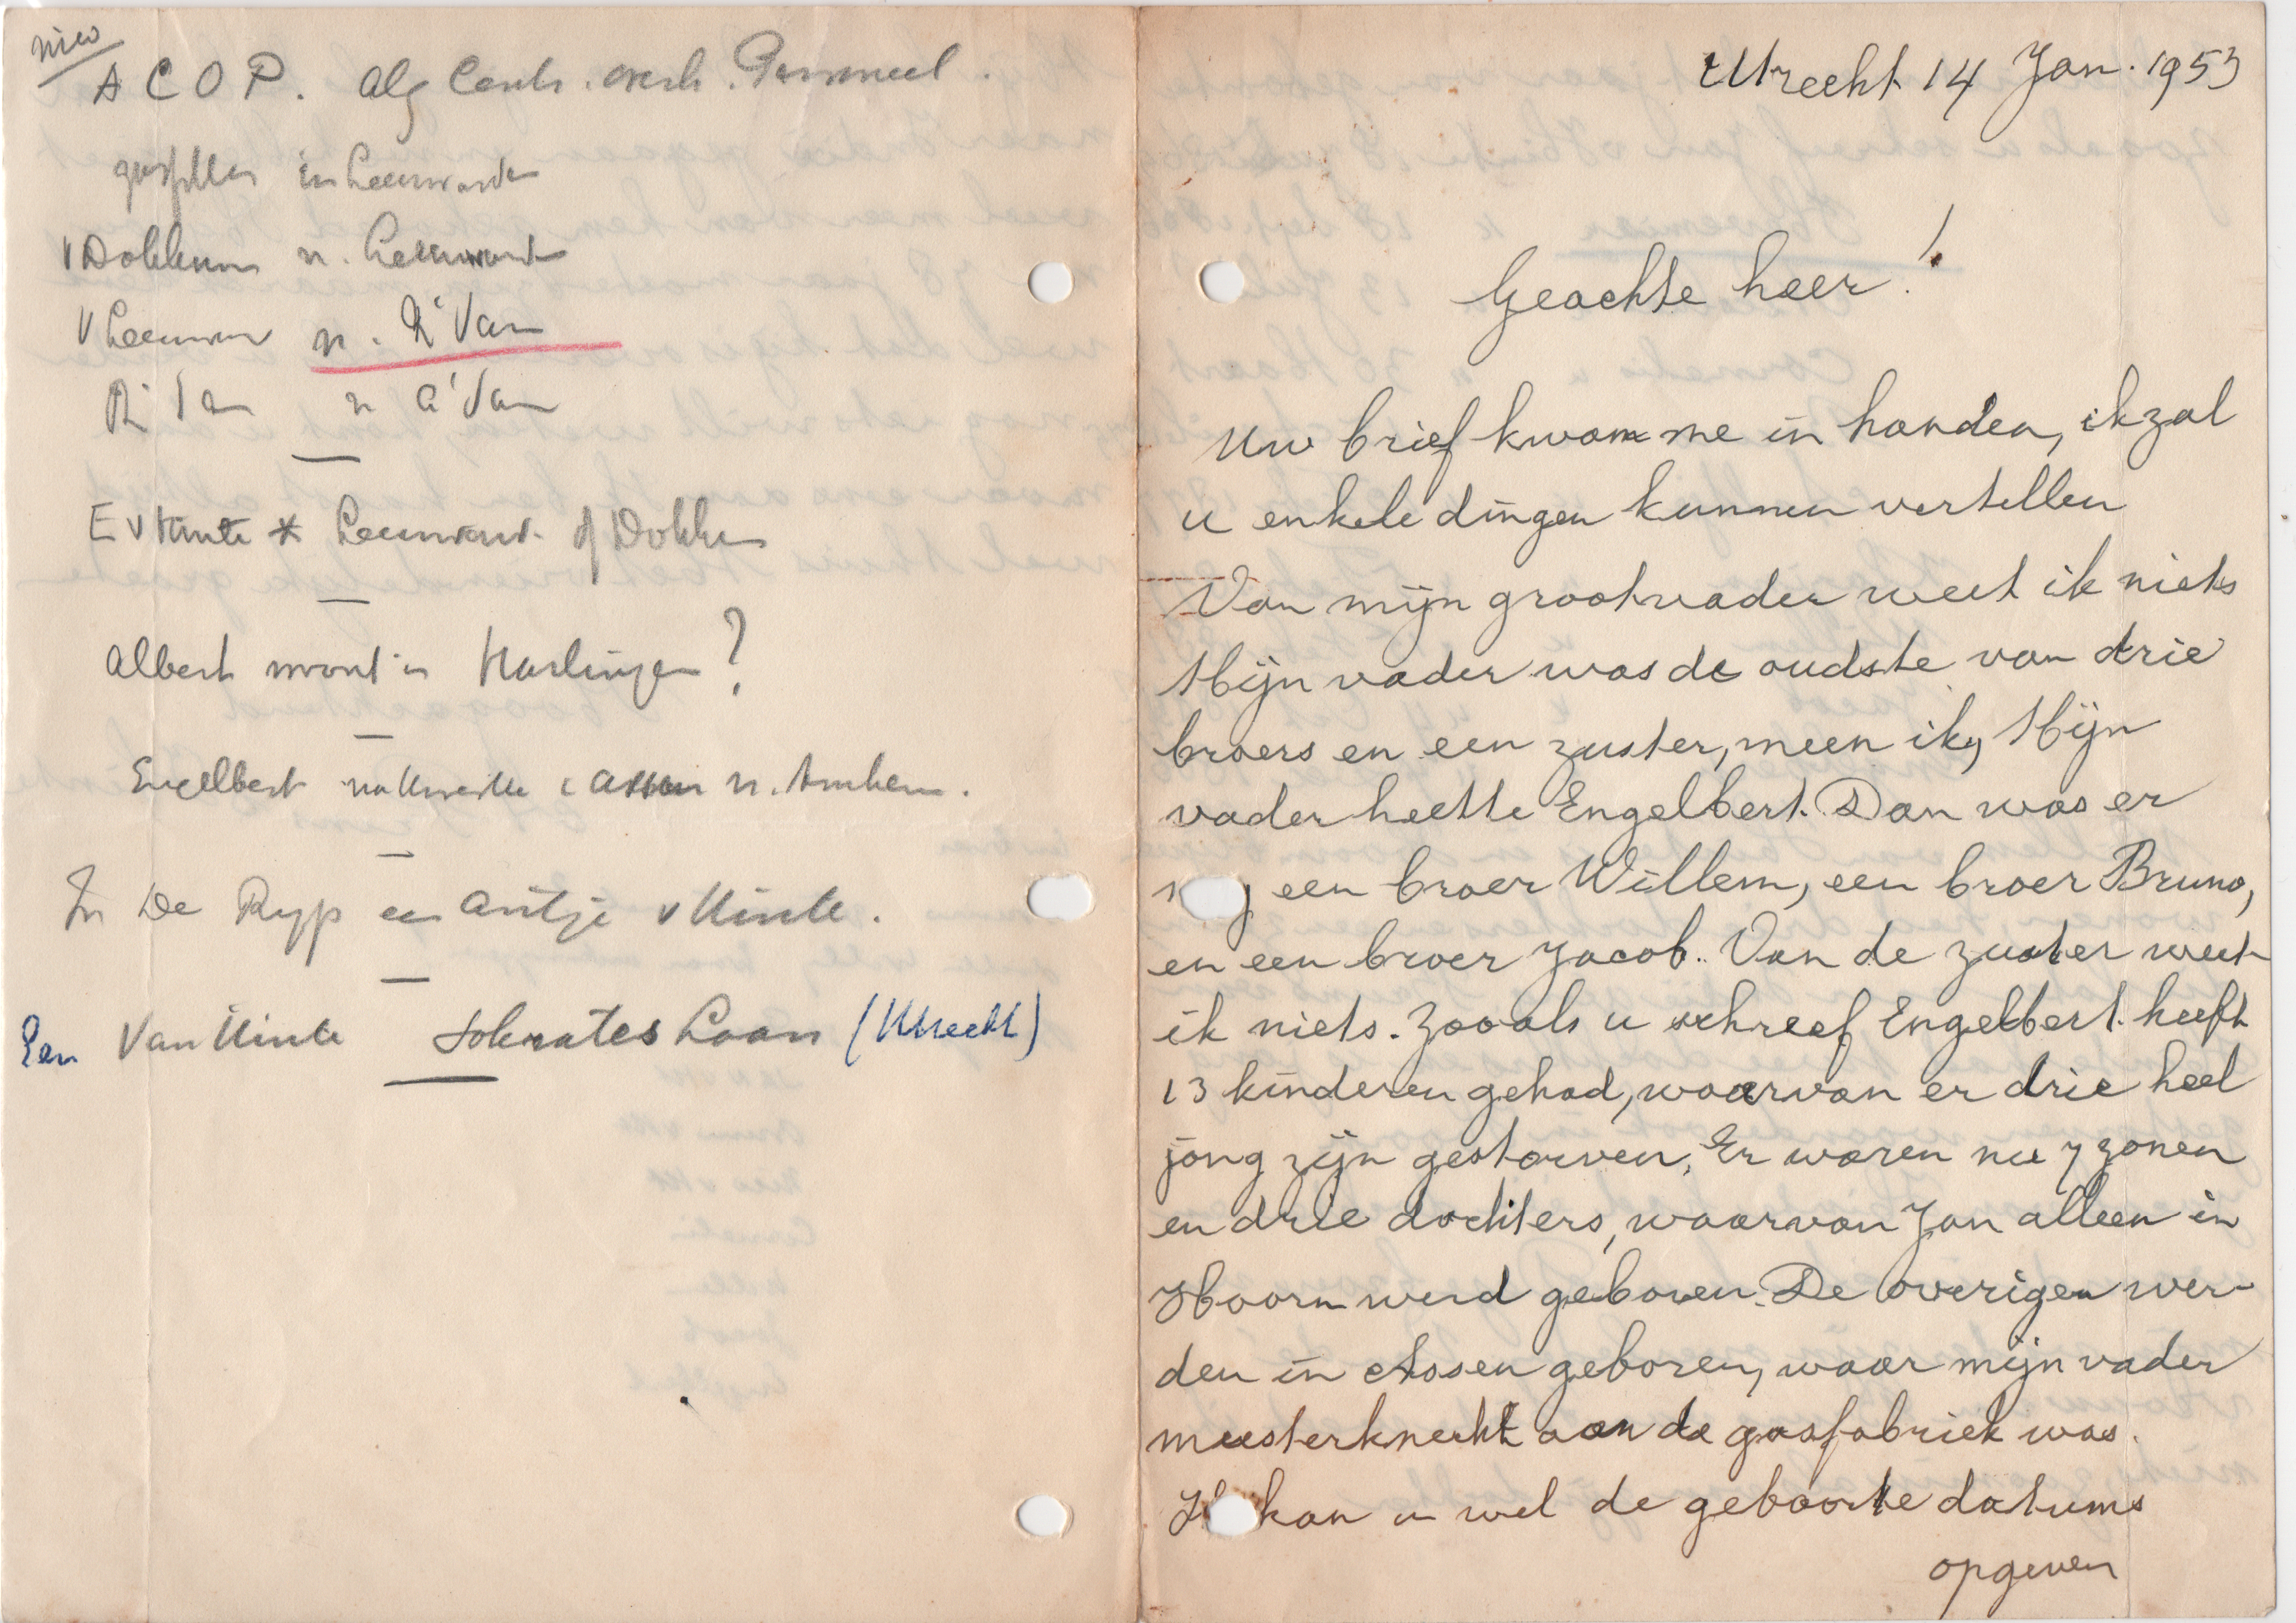 Nico
A C O P. Alg Centr. Overh. Personeel.
in Leeuwarden
v Dokkum n. Leeuward
v Leeuwar n. R'dam
R'dam n A'dam
E v Hinte * Leeuward. of Dokku
Albert woont in Harlingen?
Engelbert Assen n. Arnhem.
In De Ryp een Antje v Hinte.
Een Van Hinte Sokrates Laan (Utrecht)
Utrecht 14 Jan. 1953
Geachte heer!
Uw brief kwam me in handen, ik zal
u enkele dingen kunnen vertellen
Van mijn grootvader weet ik niets
Mijn vader was de oudste van drie
broers en een zuster, meen ik, Mijn
vader heette Engelbert. Dan was er
een broer Willem, een broer Bruno,
en een broer Jacob. Van de zuster weet
ik niets. Zooals u schreef Engelbert heeft
13 kinderen gehad, waarvan er drie heel
jong zijn gestorven. Er waren nu 7 zonen
en drie dochters, waarvan Jan alleen in
Hoorn werd geboren. De overigen wer-
den in Assen geboren, waar mijn vader
meesterknecht aan de gasfabriek was.
kan u wel de geboorte datums
opgeven